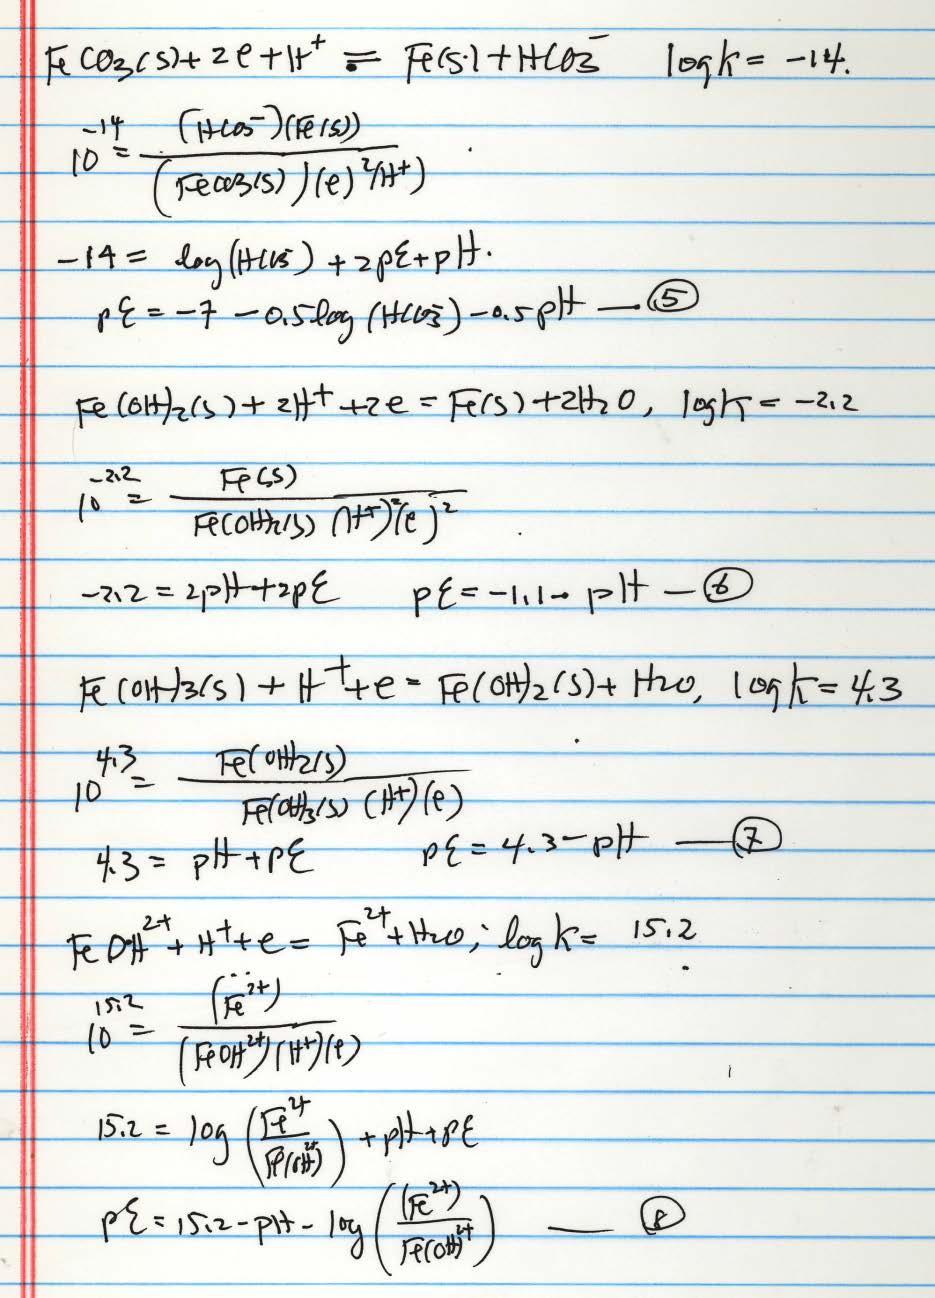 FeCO3(s) + 2e + H⁺ ⇌ Fe(s) + HCO3⁻ logK = -14.
10⁻¹⁴ = (HCO3⁻)(Fe(s)) / (FeCO3(s))(e)²(H⁺)
-14 = log(HCO3⁻) + 2pƐ + pH.
pƐ = -7 - 0.5log(HCO3⁻) - 0.5pH — ⑤
Fe(OH)2(s) + 2H⁺ + 2e = Fe(s) + 2H2O, logK = -2.2
10⁻²·² = Fe(s) / Fe(OH)2(s) (H⁺)²(e)²
-2.2 = 2pH + 2pƐ pƐ = -1.1 - pH — ⑥
Fe(OH)3(s) + H⁺ + e = Fe(OH)2(s) + H2O, logK = 4.3
10⁴·³ = Fe(OH)2(s) / Fe(OH)3(s) (H⁺)(e)
4.3 = pH + pƐ pƐ = 4.3 - pH — ⑦
FeOH²⁺ + H⁺ + e = Fe²⁺ + H2O; logK = 15.2
10¹⁵·² = (Fe²⁺) / (FeOH²⁺)(H⁺)(e)
15.2 = log (Fe²⁺ / Fe(OH)²⁺) + pH + pƐ
pƐ = 15.2 - pH - log ((Fe²⁺) / Fe(OH)²⁺) — ⑧